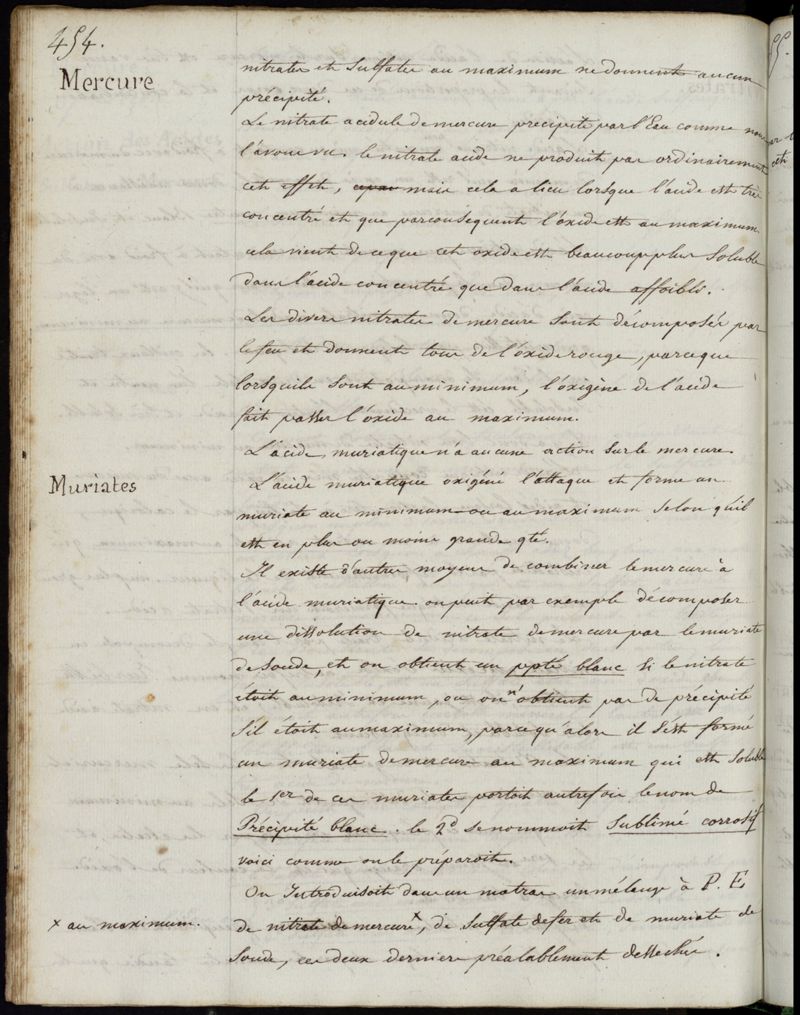 454.
Mercure
nitrates et Sulfates au maximum ne donnent aucun
précipité.
Le nitrate acidule de mercure précipite par l'Eau comme nous
l'avons vu. le nitrate acide ne produit pas ordinairement
cet effet, mais cela a lieu lorsque l'acide est très
concentré et que par conséquent l'oxide est au maximum
cela vient de ce que cet oxide est beaucoup plus Soluble
dans l'acide concentré que dans l'acide affoibli.
Les divers nitrates de mercure Sont décomposés par
le feu et donnent tous de l'óxide rouge, parceque
lorsquils Sont au minimum, l'óxigène de l'acide
fait passer l'óxide au maximum.
L'acide muriatique n'a aucune action Sur le mercure.
Muriates
L'acide muriatique oxigéné l'attaque et forme un
muriate au minimum ou au maximum Selon qu'il
est en plus ou moins grande qté.
Il existe d'autres moyens de combiner le mercure à
l'acide muriatique. on peut par exemple décomposer
une dissolution de nitrate de mercure par le muriate
de Soude, et on obtient un ppté blanc Si le nitrate
étoit au minimum, ou on n'obtient pas de précipité
S'il étoit au maximum, parcequ'alors il S'est formé
un muriate de mercure au maximum qui est Soluble
le 1er de ces muriates portoit autrefois le nom de
Précipité blanc. le 2d se nommoit Sublimé corrosif
voici comme on le préparoit.
On Introduisoit dans un matras un mélange à P. E
x au maximum.
de nitrate de mercure x, de Sulfate de fer et de muriate de
Soude, ces deux derniers préalablement desséchés.